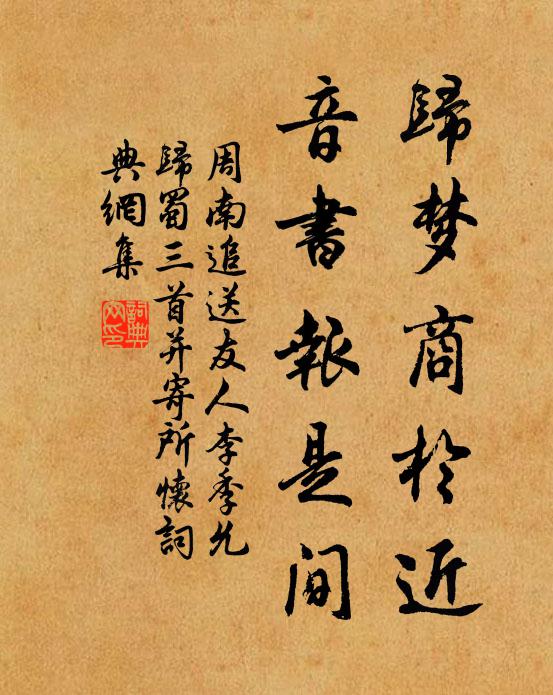 歸梦商於近
音書報是间
周南追送友人李季允
歸蜀三首并寄所懷詞
典網集
詞典
网印